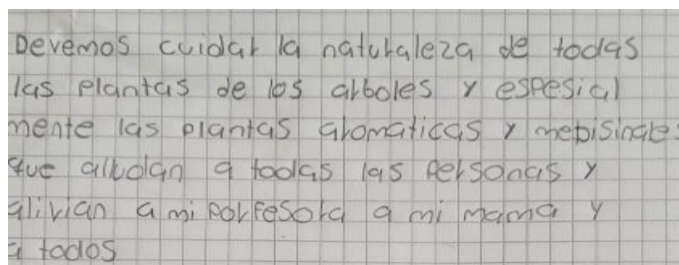 Devemos cuidar la naturaleza de todas
las plantas de los arboles y espesial
mente las plantas aromaticas y mebisinales
que alludan a todas las personas y
alivian a mi porfesora a mi mama y
a todos